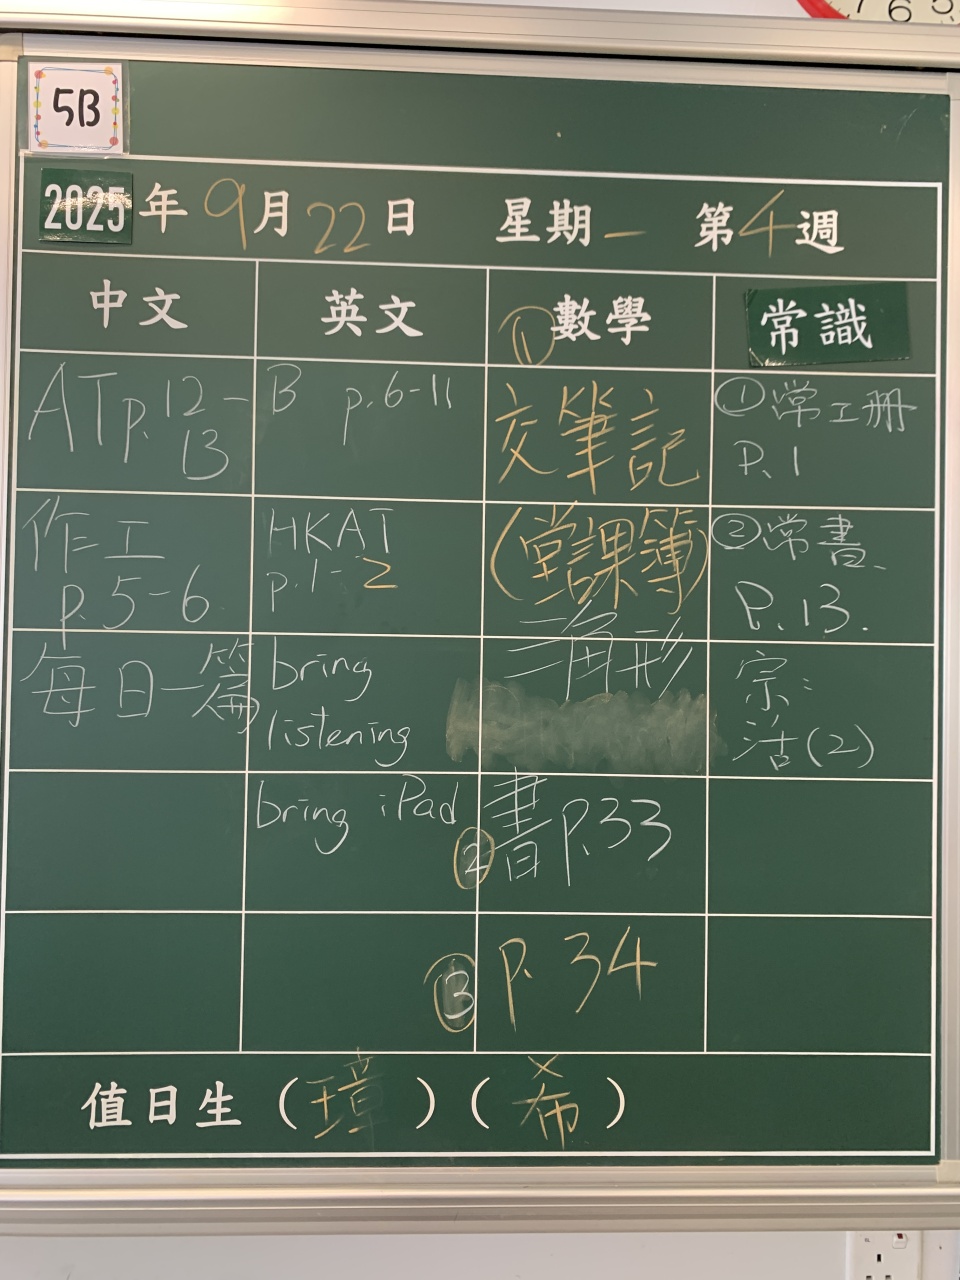 765
5B
2025年9月22日 星期一 第4週
中文
AT p.12-
13
作工
p.5-6
每日一篇
英文
B p.6-11
HKAT
p.1-2
bring
listening
bring iPad
① 數學
交筆記
(堂課簿)
三角形
② 書 P.33
③ P.34
常識
① 常工冊
P.1
② 常書
P.13.
宗:
活(2)
值日生(璋)(希)